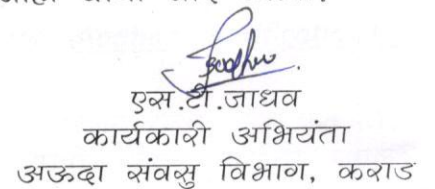 एस.टी.जाधव
कार्यकारी अभियंता
अऊदा संवसु विभाग, कराड